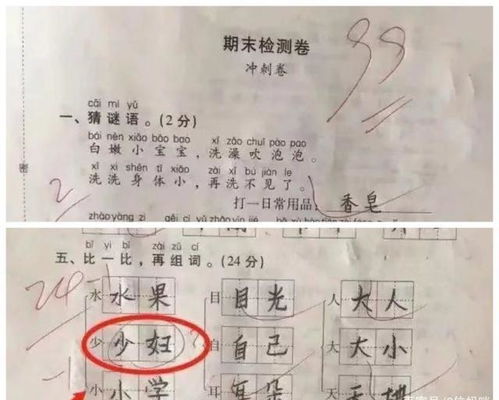 期末检测卷
冲刺卷
99
cāi mí yǔ
一、猜谜语。(2分)
bái nèn xiǎo bǎo bao xǐ zǎo chuī pào pao
白嫩小宝宝,洗澡吹泡泡。
xǐ xi shēn tǐ xiǎo zài xǐ bú jiàn le
洗洗身体小,再洗不见了。
打一日常用品:香皂
2
bǐ yi bǐ zài zǔ cí
五、比一比,再组词。(24分)
24-1
水 水果 日 目光 人 大人
少 少妇 自 自己 大 大小
-1 小 小学 耳 耳朵 天